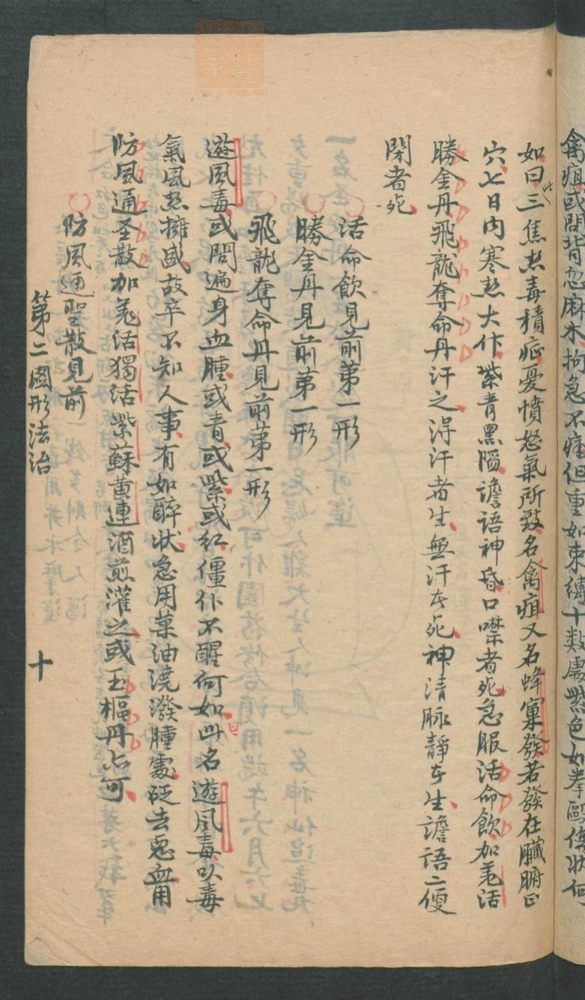 禽疽或問背忽麻木拘急不痛但重如束縛十數處紫色如拳歐傷狀何
如曰此三焦㶡毒積疵憂憤怒氣所致名禽疽又名蜂窠發若發在臟腑正
穴七日内寒熱大作紫青黑陷譫語神昏口噤者死急服活命飲加羌活
勝金丹飛龍奪命丹汗之得汗者生無汗者死神清脉靜者生譫語二便
閉者死
活命飲見前第一形
勝金丹見前第一形
飛龍奪命丹見前第一形
遊風毒或問遍身血腫或青或紫或紅僵仆不醒何如曰此名遊風毒以毒
氣風熱擁盛故卒不知人事有如醉狀急用菜油澆潑腫處砭去惡血用
防風通圣散加羌活獨活紫蘇黄連酒煎灌之或玉樞丹亦可
防風通聖散見前
第二圖形法治
十